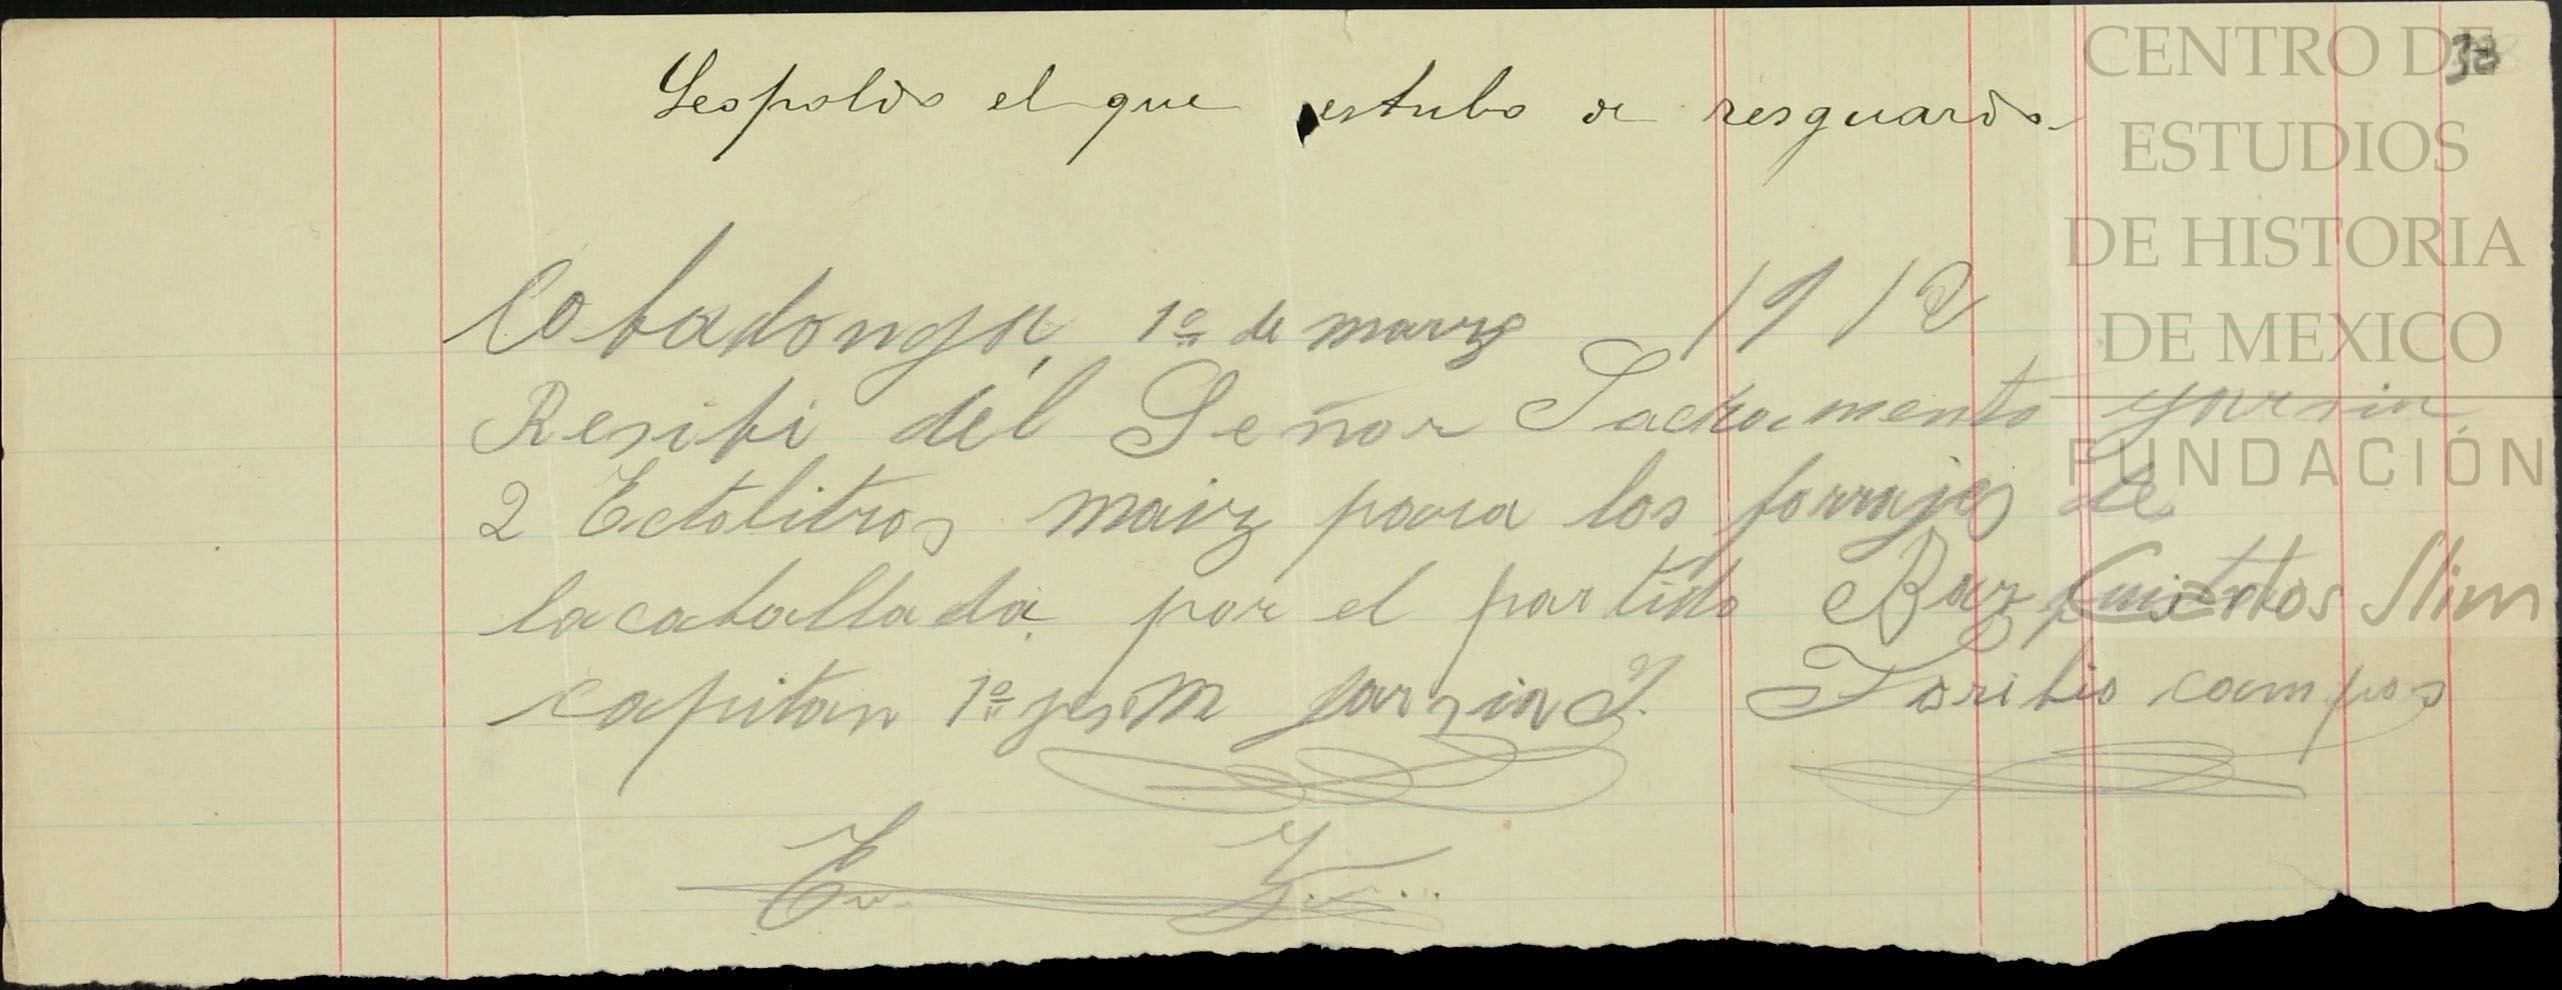 38
Leopoldo el que estubo de resguardo
Cobadonga, 1º de marzo 1912
Resibi del Señor Sacramento garsia
2 Ectolitros maiz para los forrajes de
la caballada por el partido Bazquista
capitan 1º garsia J. Toribio campos
CENTRO DE
ESTUDIOS
DE HISTORIA
DE MEXICO
FUNDACIÓN
Carlos Slim